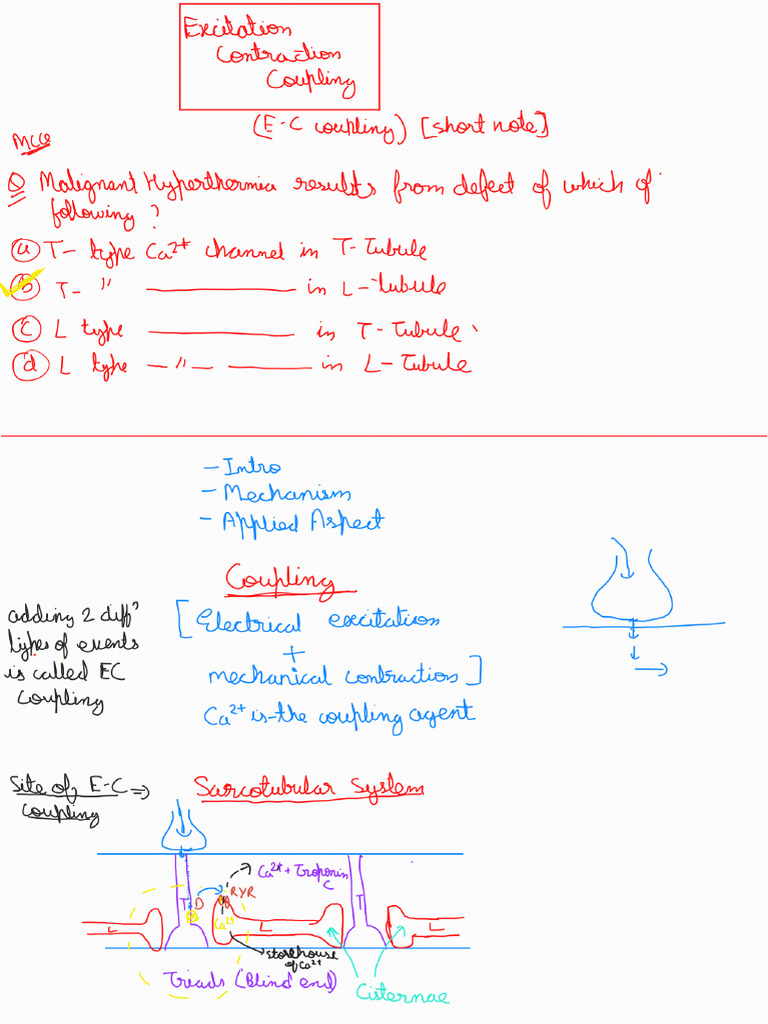 Excitation
Contraction
Coupling
(E-C coupling) [short note]
MCQ
Q Malignant Hyperthermia results from defect of which of
following ?
(a) T- type Ca2+ channel in T-Tubule
(b) T- " ———— in L-tubule
(c) L type ———— in T-Tubule
(d) L type —"— ———— in L-Tubule
- Intro
- Mechanism
- Applied Aspect
Coupling
adding 2 diffn
types of events
is called EC
Coupling
[Electrical excitation
+
mechanical contraction]
Ca2+ is the coupling agent
Site of E-C ⇒
coupling
Sarcotubular System
Ca2+ + Troponin
C
T
D
RYR
T
L
Ca2+
L
L
storehouse
of Ca2+
Triads (Blind end)
Cisternae